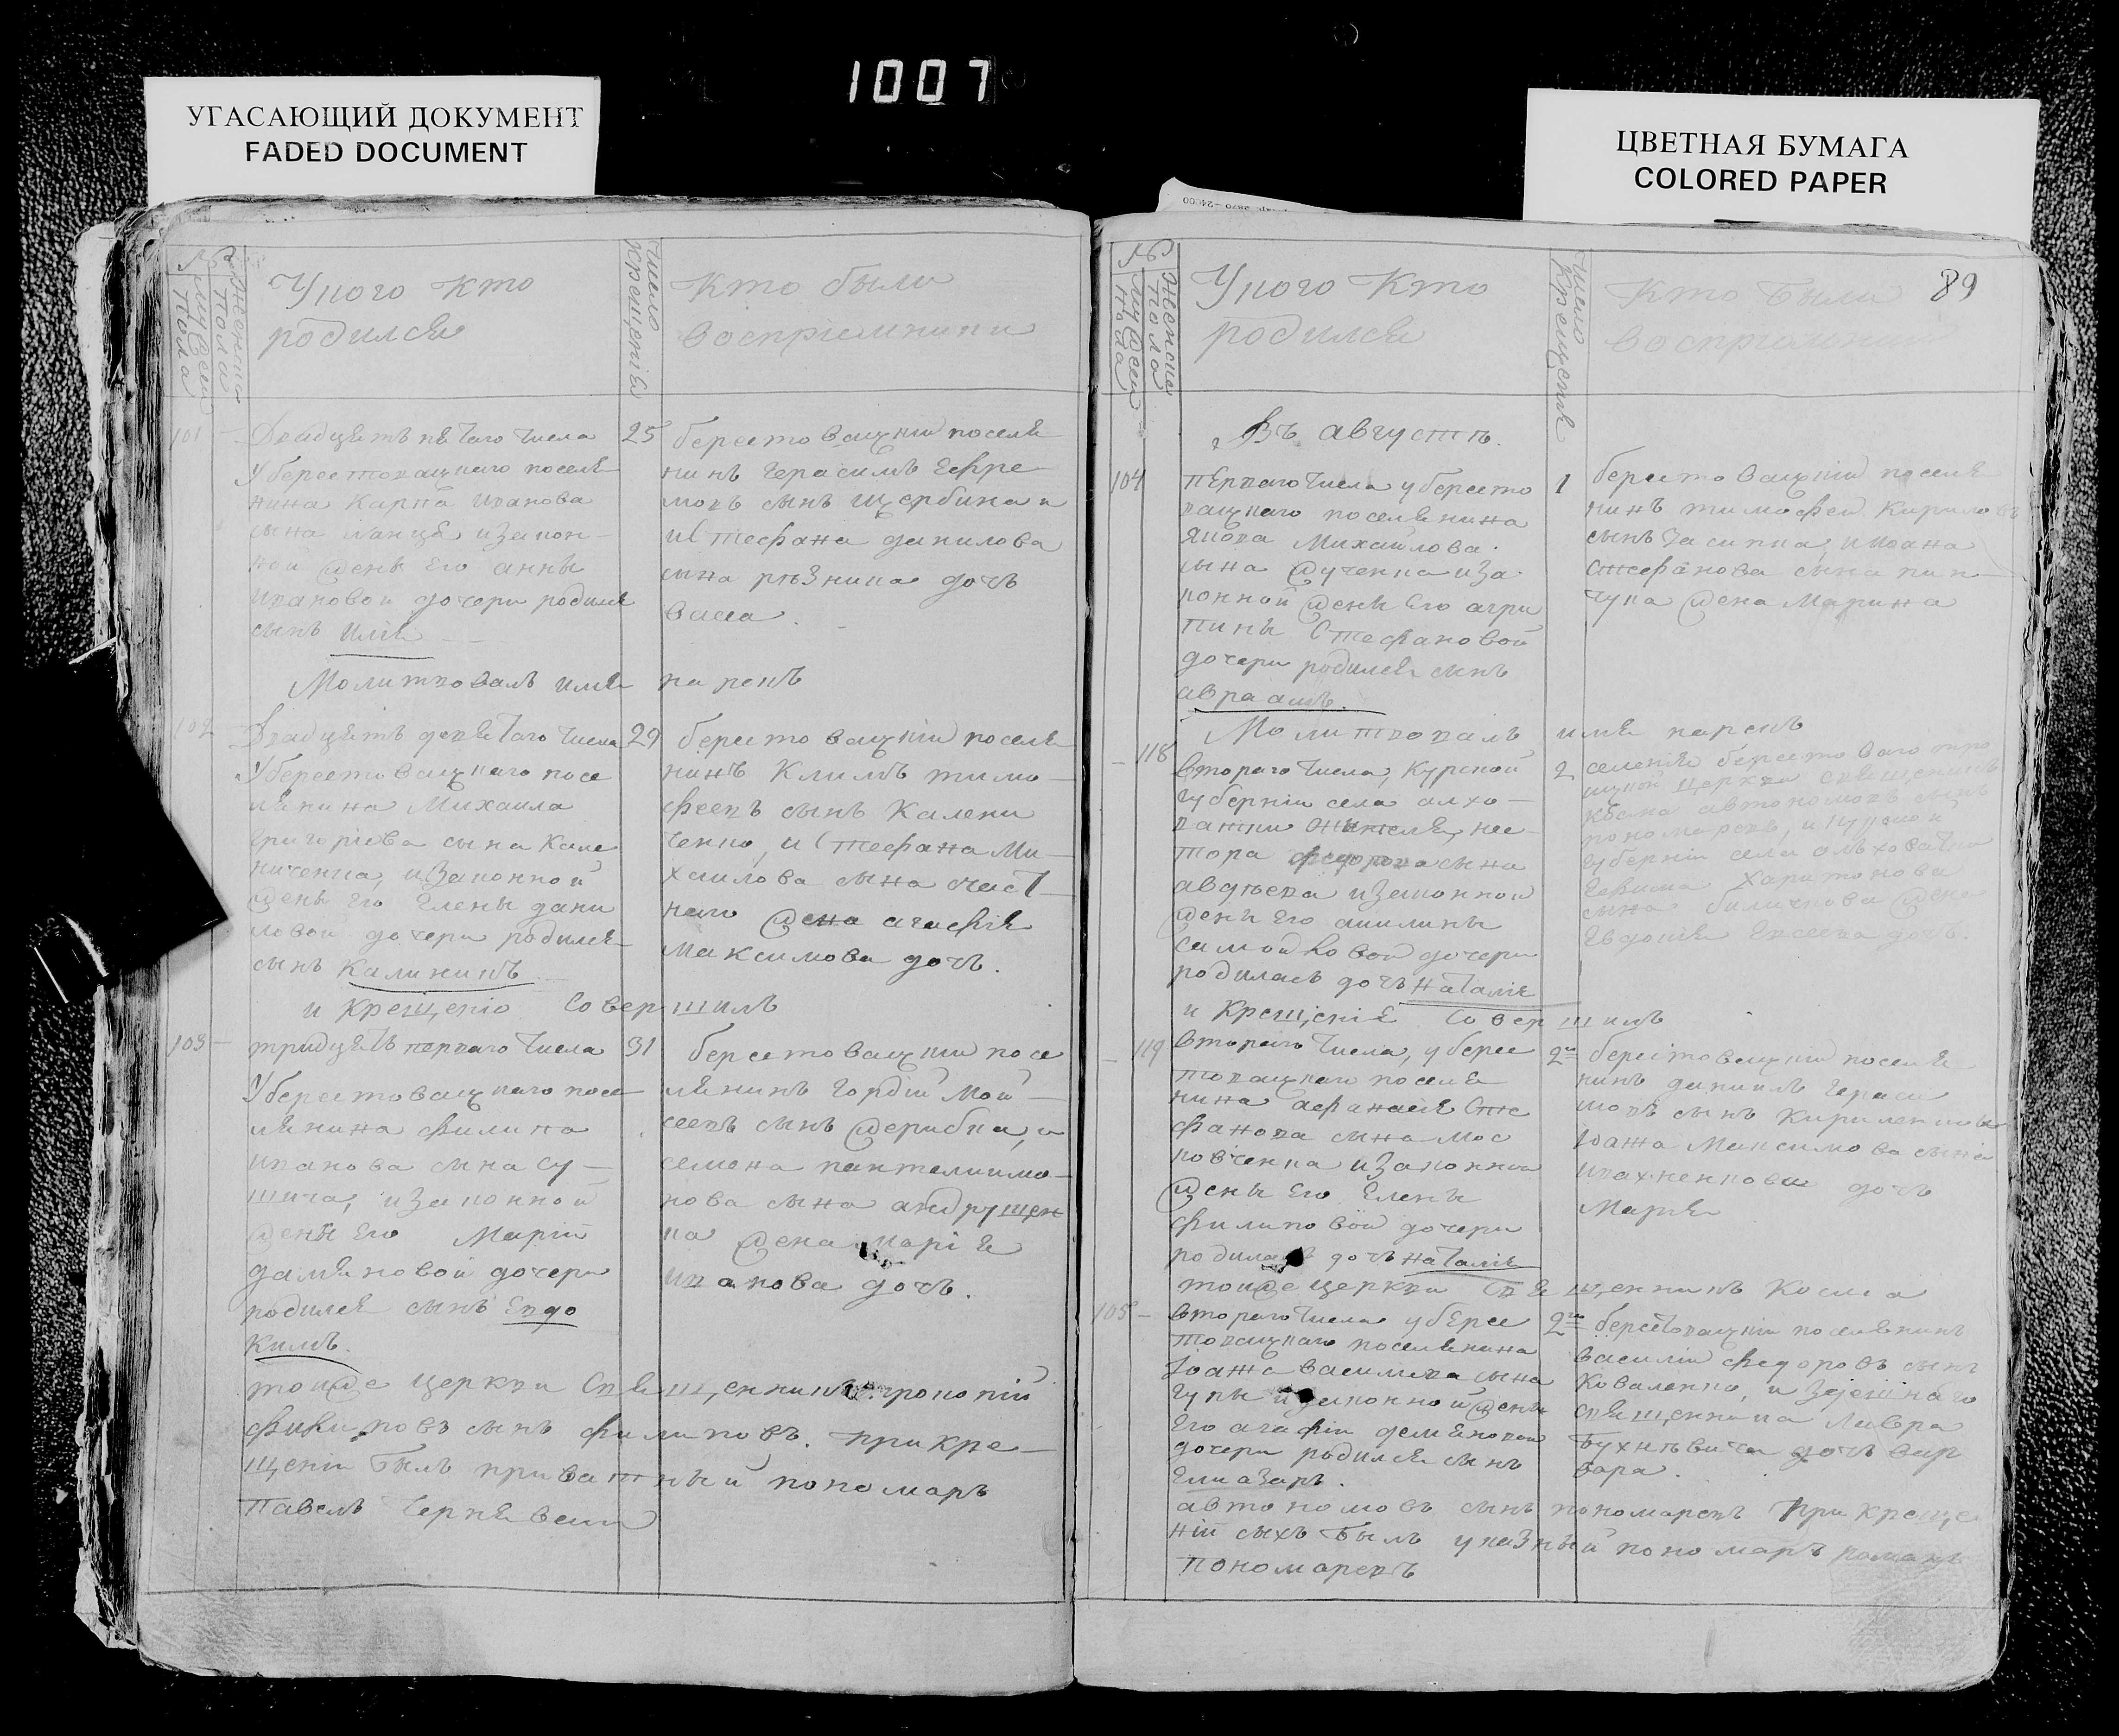 1007
УГАСАЮЩИЙ ДОКУМЕНТ
FADED DOCUMENT
ЦВЕТНАЯ БУМАГА
COLORED PAPER
№
Мужеска Пола
Женска Пола
Уного кто
родился
число крещенія
Кто были
восприемники
101
Двадцять пятаго числа
25
Уберестовацкаго поселя
нина Карпа иванова
сына изакон
ной жены Его анны
ивановой дочери родился
сынъ Илія
берестовацкий поселя
нинъ Герасимъ Ефре
мовъ сынъ Щербина и
Стефана данилова
сына рѣзника дочь
васса.
Молитвовалъ имя нареклъ
102
Двадцять девятаго числа
29
Уберестовацкаго посе
лянина Михаила
Григоріева сына Кале
ниченка, изаконной
жены Его Елены дани
ловой дочери родился
сынъ Калиникъ
берестовацкий поселя
нинъ Климъ тимо
феевъ сынъ Калени
ченко, и Стефана Ми
хаилова сына счаст
наго жена агафія
максимова дочь.
и крещеніе Совершилъ
103
тридцять перваго числа
31
Уберестовацкаго посе
лянина филипа
иванова сына су
шича, изаконной
жены Его Маріи
дамяновой дочери
родился сынъ Евдо
кимъ.
берестовацкий посе
лянинъ Гордій Мой
сеевъ сынъ жерибка, и
семена пантелиимо
нова сына андрущен
ка жена марія
иванова дочь.
тойже церкви Священникъ
сынъ филиповъ. прикре
щеніи былъ приватный пономарь
Павелъ Чернявский
89
№
Мужеска Пола
Женска Пола
Уного Кто
родился
число Крещенія
Кто были
восприемники
Въ августѣ.
104
перваго числа убересто
1
вацкаго поселянина
якова Михайлова
сына жученка иза
конной жены Его агри
пины Стефановой
дочери родился сынъ
авраамъ.
берестовацкий поселя
нинъ тимофей Кириловъ
сынъ Часника, и ивана
Стефанова сына пин
чука жена Марина
Молитвовалъ имя нареклъ
118
втораго числа, Курской
2
губерніи села олхо
ватки жителя, нес
тора федорова сына
авдѣева изаконной
жены Его акилины
самойловой дочери
родилась дочь Наталія
селенія берестоваго тро
ицкой церкви священникъ
Косма автономовъ сынъ
пономаревъ, и Курской
губерніи села олховатки
Ефима Харитонова
сына жена
Евдокія Евсеева дочь.
и Крещеніе Совершилъ
119
втораго числа, уберес
2го
товацкаго поселя
нина афанасія Сте
фанова сына мос
ковченка изаконной
жены Его Елены
филиповой дочери
родилась дочь Наталія
берестовацкий поселя
нинъ даниилъ Гераси
мовъ сынъ Кириленковъ
іоана Максимова сына
ивахненкова дочь
Марія
тойже церкви Священникъ Косма
105
втораго числа уберес
2го
товацкаго поселянина
іоана васильева сына
Чупы изаконной жены
Его агафіи демяновой
дочери родился сынъ
Елиазаръ.
берестовацкий поселянинъ
василій федоровъ сынъ
Коваленко, и
священника Лавра
дочь вар
вара.
автономовъ сынъ пономаревъ При креще
ніи сихъ былъ указный пономарь романъ
пономаревъ